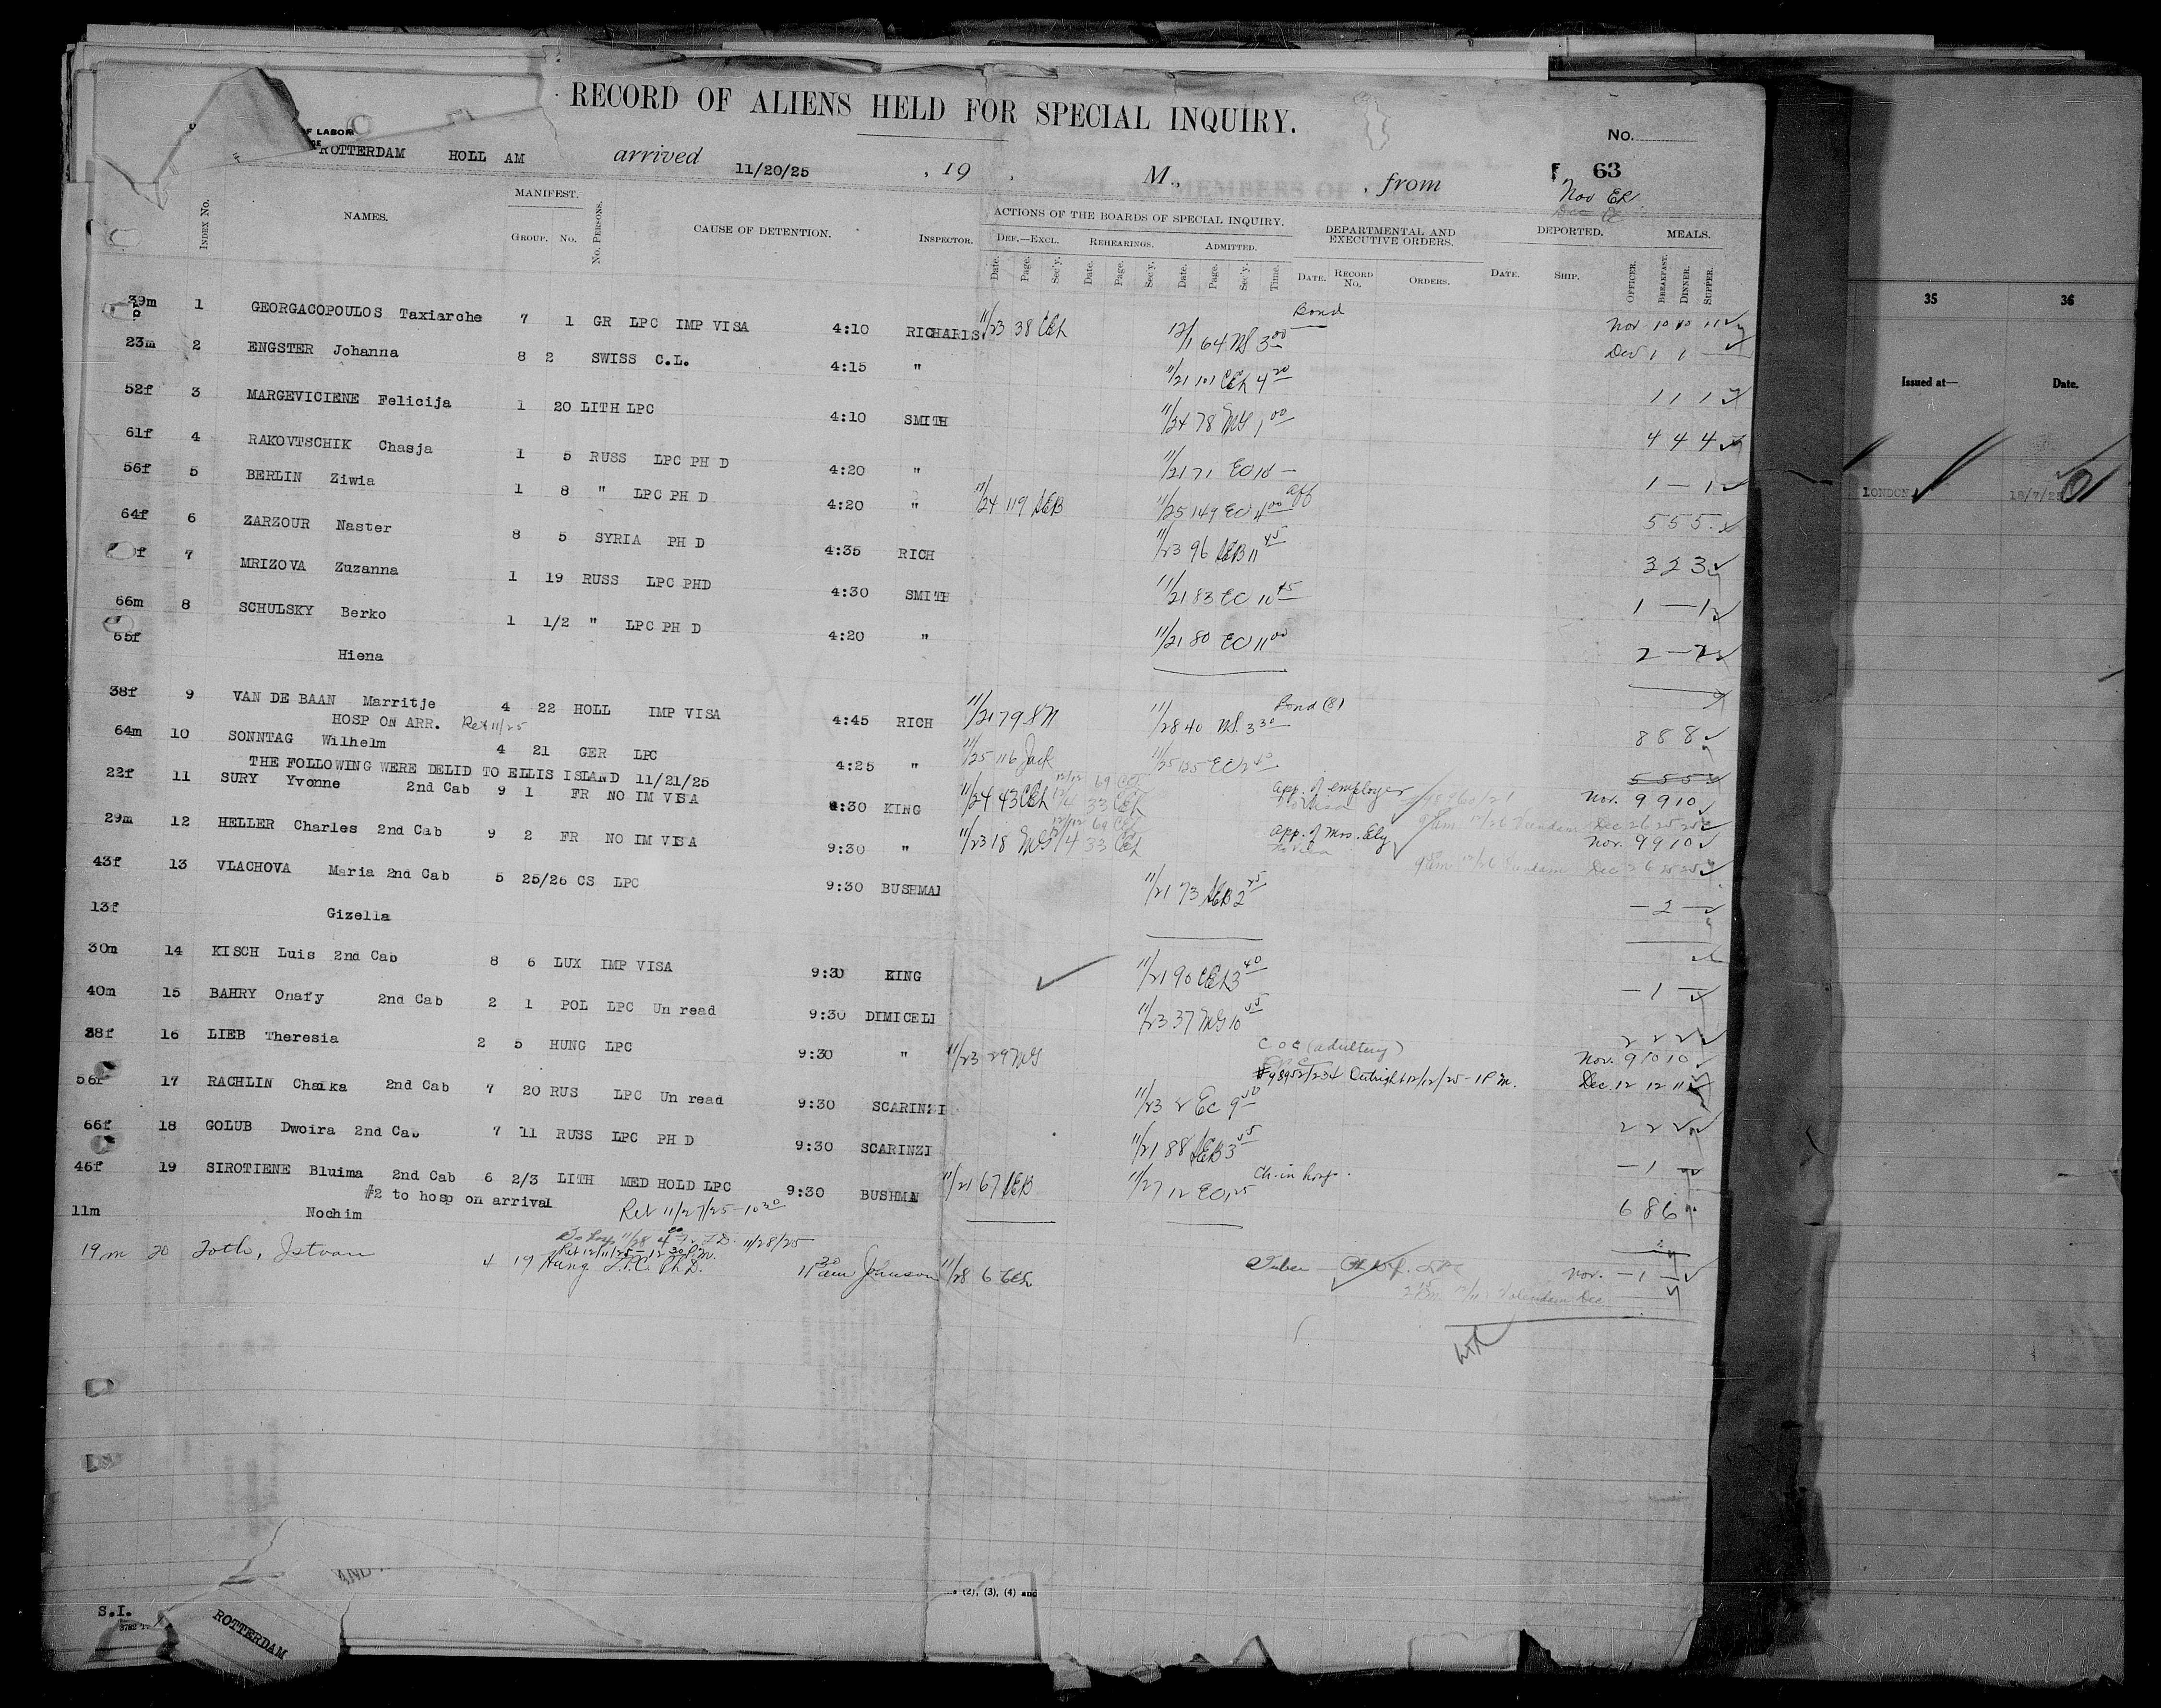 RECORD OF ALIENS HELD FOR SPECIAL INQUIRY.
F LABOR
No.
ROTTERDAM HOLL AM arrived 11/20/25 , 19 , M., , from 63
Nov ER
MANIFEST. ACTIONS OF THE BOARDS OF SPECIAL INQUIRY. DEPARTMENTAL AND EXECUTIVE ORDERS. DEPORTED. MEALS.
INDEX No. NAMES. GROUP. No. No. PERSONS. CAUSE OF DETENTION. INSPECTOR. DEF.—EXCL. REHEARINGS. ADMITTED.
Date. Page. Sec'y. Date. Page. Sec'y. Date. Page. Sec'y. Time. DATE. RECORD No. ORDERS. DATE. SHIP. OFFICER. BREAKFAST. DINNER. SUPPER.
39m 1 GEORGACOPOULOS Taxiarche 7 1 GR LPC IMP VISA 4:10 RICHARDS 11/23 38 CEh 12/1 64 NS 3 00 Bond Nov 10 10 11
Dec 1 1 —
23m 2 ENGSTER Johanna 8 2 SWISS C.L. 4:15 " 11/21 101 CEh 4 20 1 1 1
52f 3 MARGEVICIENE Felicija 1 20 LITH LPC 4:10 SMITH 11/24 78 MG 1 00 4 4 4
61f 4 RAKOVTSCHIK Chasja 1 5 RUSS LPC PH D 4:20 " 11/21 71 EO 10 — 1 — 1
56f 5 BERLIN Ziwia 1 8 " LPC PH D 4:20 " 11/24 119 AEB 11/25 149 EO 4 00 aff 5 5 5
64f 6 ZARZOUR Naster 8 5 SYRIA PH D 4:35 RICH 11/23 96 AEB 11 45 3 2 3
f 7 MRIZOVA Zuzanna 1 19 RUSS LPC PHD 4:30 SMITH 11/21 83 EO 10 45 1 — 1
66m 8 SCHULSKY Berko 1 1/2 " LPC PH D 4:20 " 11/21 80 EO 11 00 2 — 2
65f Hiena
38f 9 VAN DE BAAN Marritje 4 22 HOLL IMP VISA 4:45 RICH 11/21 79 SN 11/28 40 NS 3 30 Bond (8) 8 8 8
HOSP ON ARR. Ret 11/25
64m 10 SONNTAG Wilhelm 4 21 GER LPC 4:25 " 11/25 116 Jack 11/25 125 EO 2 40 5 5 5
THE FOLLOWING WERE DELID TO ELLIS ISLAND 11/21/25
22f 11 SURY Yvonne 2nd Cab 9 1 FR NO IM VISA 9:30 KING 11/24 43 CEh 12/4 33 CEh 12/12 69 CEh app. of employer Nov. 9 9 10
12/26 Veendam Dec 26 25 25
29m 12 HELLER Charles 2nd Cab 9 2 FR NO IM VISA 9:30 " 11/23 18 MG 12/4 33 CEh 12/12 69 CEh app. of Mrs. Ely Nov. 9 9 10
12/26 Veendam Dec 26 25 25
43f 13 VLACHOVA Maria 2nd Cab 5 25/26 CS LPC 9:30 BUSHMAN 11/21 73 AEB 2 25 — 2 —
13f Gizella
30m 14 KISCH Luis 2nd Cab 8 6 LUX IMP VISA 9:30 KING 11/21 90 CEh 3 40 — 1 —
40m 15 BAHRY Onafy 2nd Cab 2 1 POL LPC Un read 9:30 DIMICELI 11/23 37 MG 10 55 2 2 2
38f 16 LIEB Theresia 2 5 HUNG LPC 9:30 " 11/23 29 MG C O C (adultery) Nov. 9 10 10
#98952/234 Outright 12/12/25 - 1 P.M. Dec. 12 12 11
56f 17 RACHLIN Chaika 2nd Cab 7 20 RUS LPC Un read 9:30 SCARINZI 11/23 2 EC 9 50 2 2 2
66f 18 GOLUB Dwoira 2nd Cab 7 11 RUSS LPC PH D 9:30 SCARINZI 11/21 88 AEB 3 55 — 1 —
46f 19 SIROTIENE Bluima 2nd Cab 6 2/3 LITH MED HOLD LPC 9:30 BUSHMA 11/21 67 AEB 11/27 12 EO 1 25 Ch. in hosp. 6 8 6
#2 to hosp on arrival Ret 11/27/25 - 10 30
11m Nochim
To hosp 11/28 11/28/25
Ret 12/11/25 - 12 30 P.M.
19m 20 Toth, Istvan 4 19 Hung L.P.C. Ph.D. 11 30 am Johnson 11/28 6 CEh Tuber Nov. — 1 —
12/11 Volendam Dec
S.I.
ROTTERDAM
AND
(2), (3), (4) and
35 36
Issued at— Date.
LONDON 18/7/25